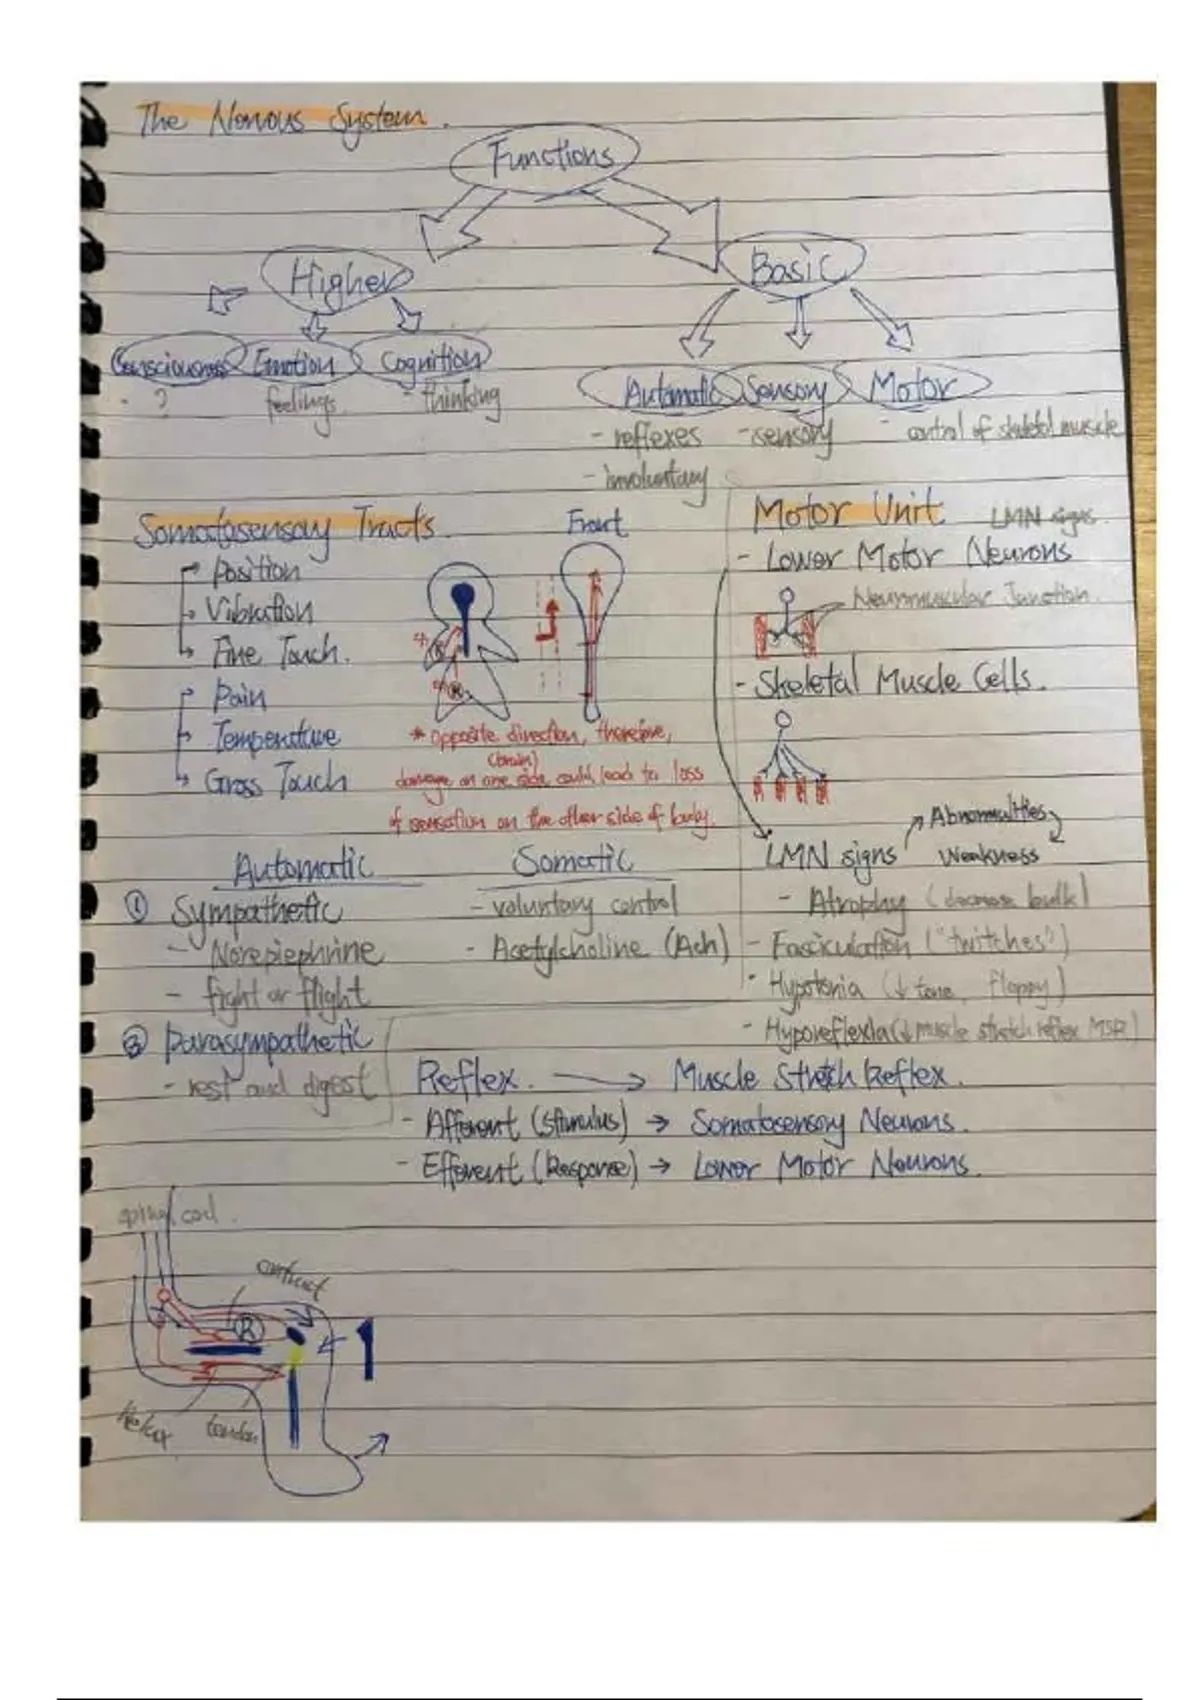 The Nervous System.
Functions
Higher
Basic
Consciousness Emotion Cognition
- ? feelings - thinking
Automatic Sensory Motor
- reflexes - sensory - control of skeletal muscle
- involuntary
Somatosensory Tracts.
Position
Vibration
Fine Touch.
Pain
Temperature
Gross Touch
Front
R
R
* opposite direction, therefore,
(brain)
damage on one side could lead to loss
of sensation on the other side of body.
Motor Unit LMN signs.
- Lower Motor Neurons
Neuromuscular Junction.
- Skeletal Muscle Cells.
LMN signs Abnormalities
Weakness
- Atrophy (decrease bulk)
- Fasciculation ("twitches")
- Hypotonia (↓ tone, floppy)
- Hyporeflexia (↓ muscle stretch reflex MSR)
Automatic
① Sympathetic
- Norepiephrine
- fight or flight
② Parasympathetic
- rest and digest
Somatic
- voluntary control
- Acetylcholine (Ach)
Reflex. → Muscle Stretch Reflex.
- Afferent (stimulus) → Somatosensory Neurons.
- Efferent (Response) → Lower Motor Neurons.
contract
R
tendon